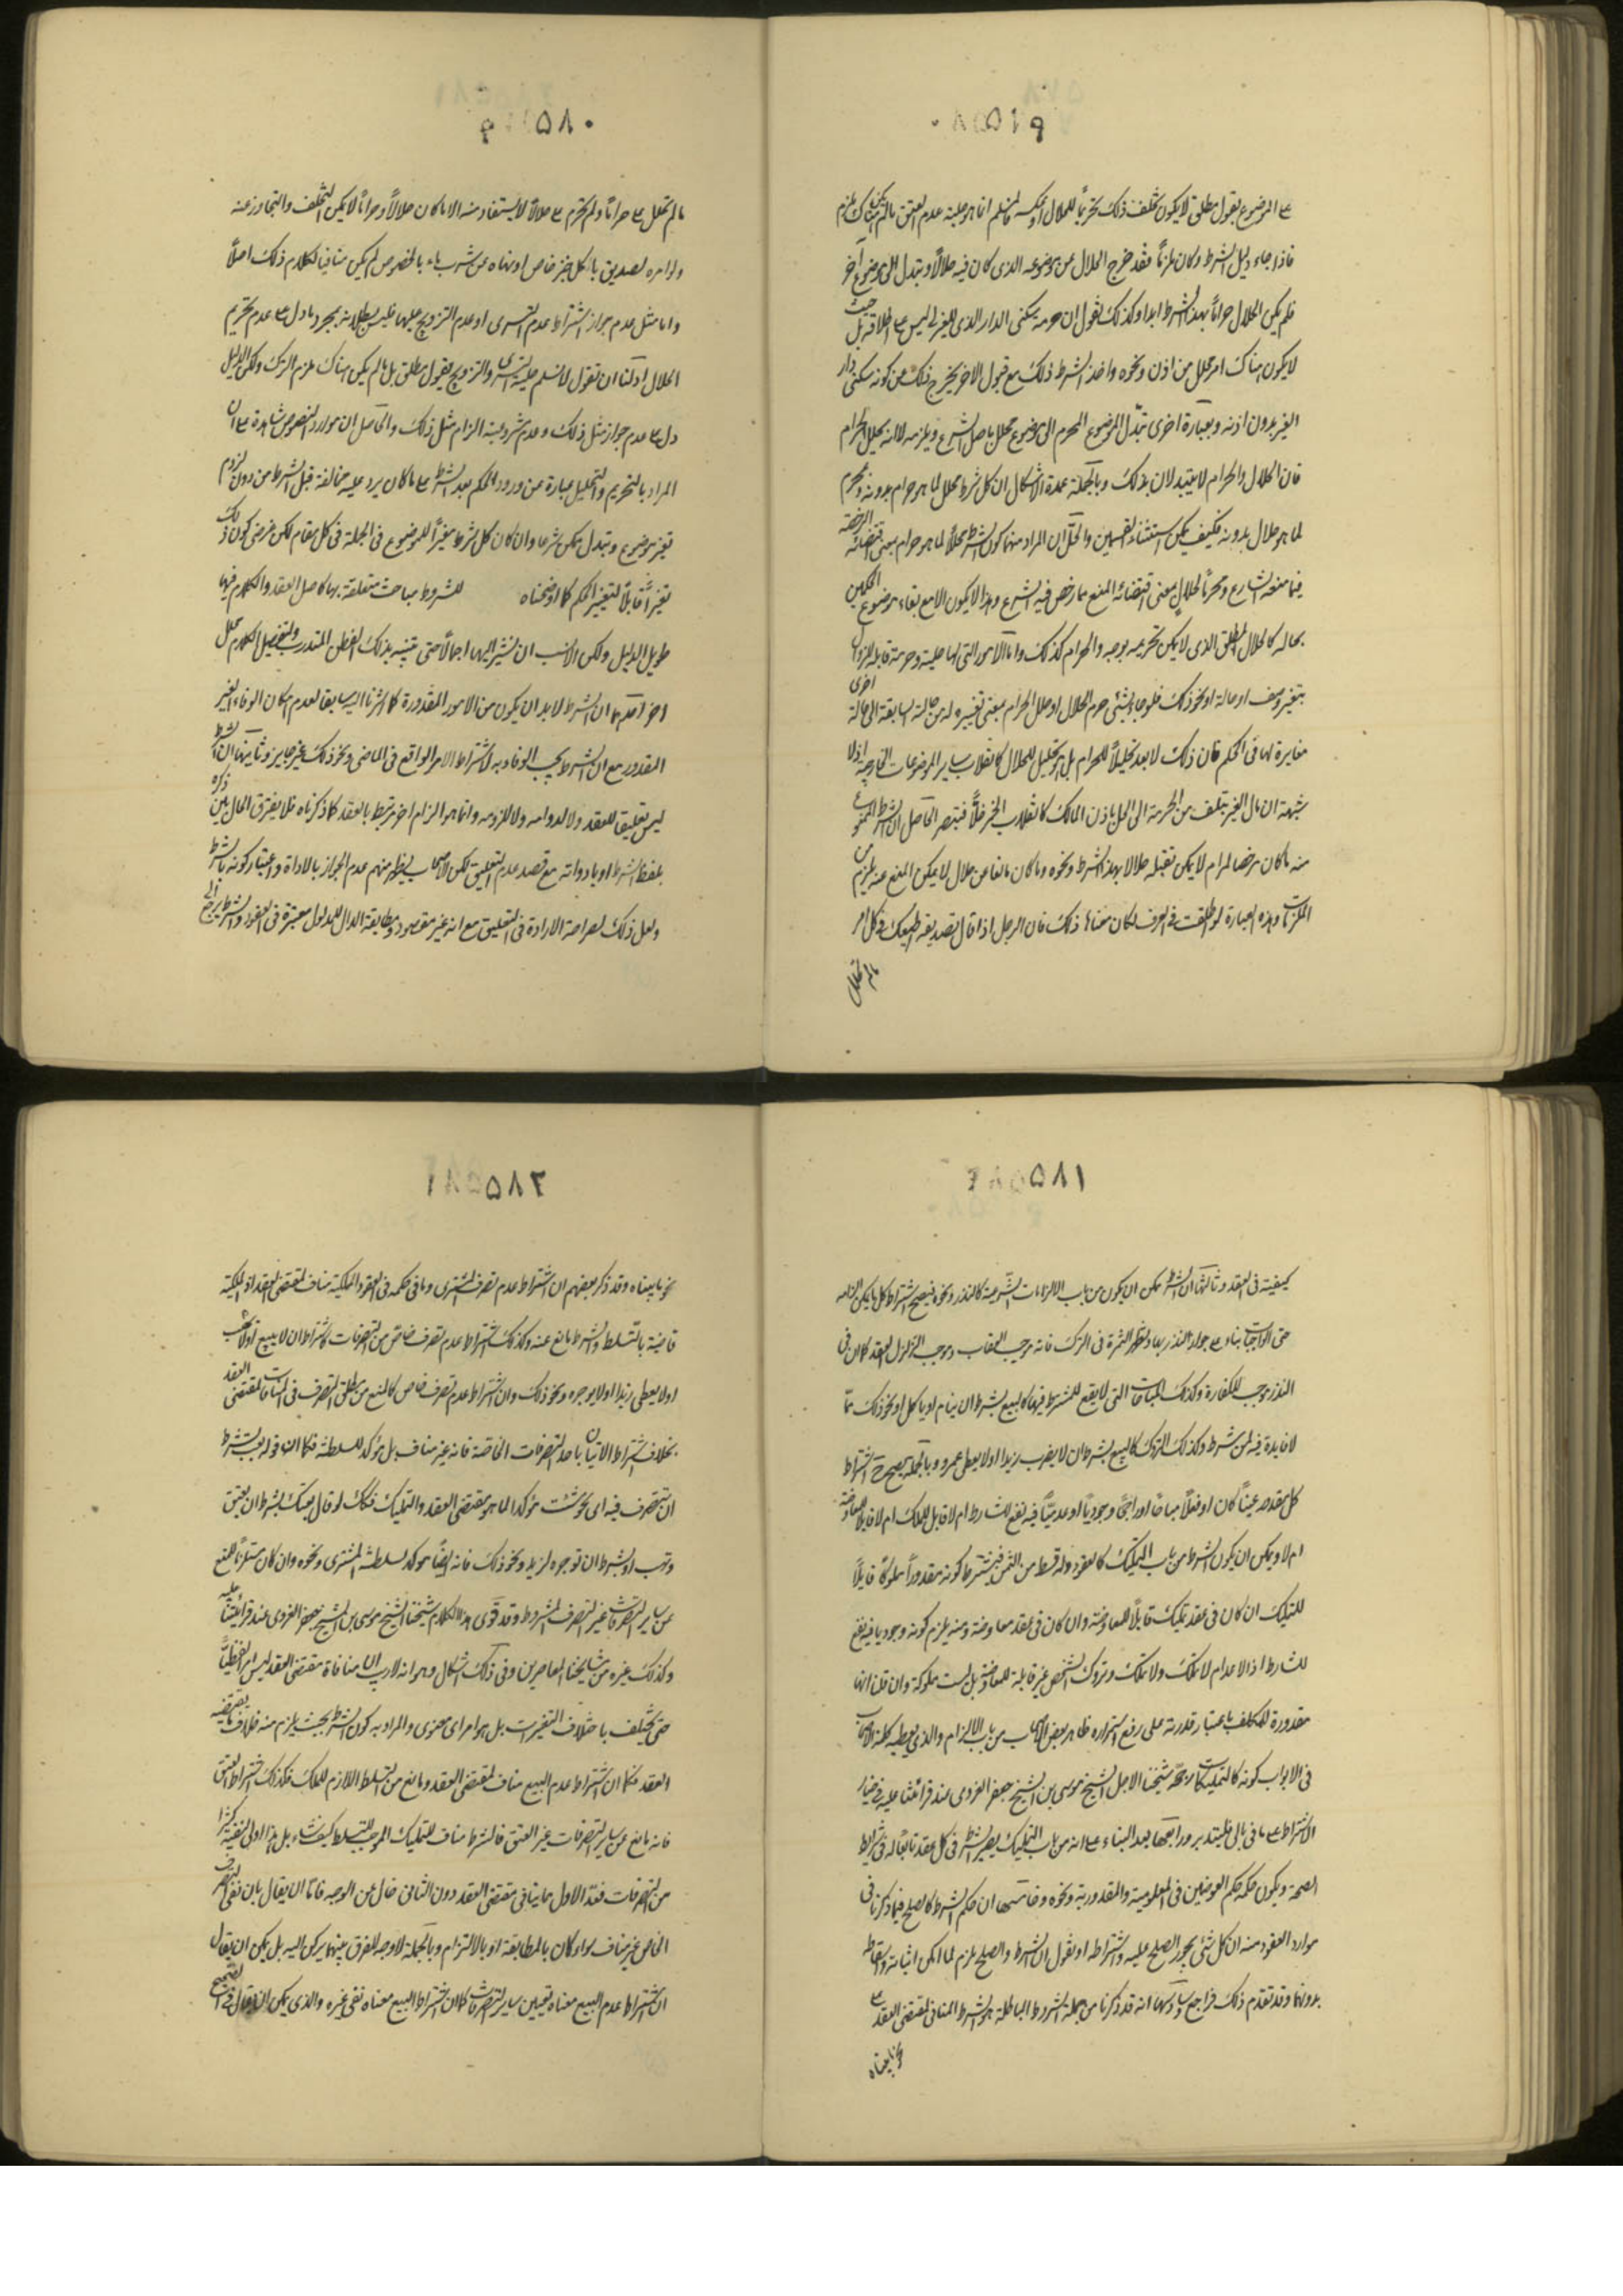 على الموضوع بقول مطلق لا يكون تخلف ذلك تحريما للحلال او عكسه فانما هو حلية عدم العتق ما لم يكن هناك ملزم
فاذا جاء دليل الشرط وكان ملزما فقد خرج الحلال عن موضوعه الذى كان فيه حلالا وتبدل الى موضوع آخر
فلم يكن الحلال حراما بهذا الشرط ابدا وكذلك نقول ان حرمة سكنى الدار الذى للغير ليس على اطلاقه بل حيث
لا يكون هناك امر محلل من اذن ونحوه واخذ الشرط ذلك مع قبول الاخر يخرج ذلك من كونه سكنى دار
الغير بدون اذنه وبعبارة اخرى تبدل الموضوع المحرم الى موضوع محلل باصل الشرع ويلزمه لا انه يحلل الحرام
فان الحلال والحرام لا يتبدلان بذلك وبالجملة عمدة الاشكال ان كل شرط محلل لما هو حرام بدونه ومحرم
لما هو حلال بدونه فكيف يمكن استثناء القسمين والحل ان المراد منهما كون الشرط محللا لما هو حرام بمعنى اقتضائه الرخصة
فيما منعه الشارع ومحرما لحلال بمعنى اقتضائه المنع مما رخص فيه الشرع وهذا لا يكون الا مع بقاء موضوع الحكمين
بحاله كالحلال المطلق الذى لا يمكن تحريمه بوجه والحرام كذلك واما الامور التى لها حلية وحرمة قابلة للزوال
بتغير وصف او حالة او نحو ذلك فلو جاء شئ حرم الحلال او حلل الحرام بمعنى تغييره له من حالته السابقة الى حالة اخرى
مغايرة لها فى الحكم فان ذلك لا يعد تحليلا للحرام بل هو تحليل للحلال كانقلاب ساير الموضوعات الخارجية اذ لا
شبهة ان مال الغير ينقلب من الحرمة الى الحل باذن المالك كانقلاب الخمر خلا فتبصر الحاصل ان الشرط الممنوع
منه ما كان مرخصا لحرام لا يمكن تقلبه حلالا بهذا الشرط ونحوه وما كان مانعا عن حلال لا يمكن المنع عنه بملزم من
الملزمات وهذه العبارة لو اطلقت فى العرف لكان معناها ذلك فان الرجل اذا قال لصديقه اطيعك فى كل امر
ما لم تحلل
٥٨٠
ما لم تحلل على حراما ولم تحرم على حلالا لا يستفاد منه الا ما كان حلالا وحراما لا يمكن التخلف والتجاوز عنه
ولو امره الصديق باكل خبز خاص او نهاه عن شرب ماء بالخصوص لم يكن منافيا لكلامه ذلك اصلا
واما مثل عدم جواز اشتراط عدم التسرى او عدم التزويج عليها فليس بطلانه بمجرد ما دل على عدم تحريم
الحلال اذ لنا ان نقول لا نسلم حلية التسرى والتزويج بقول مطلق بل ما لم يكن هناك ملزم الترك ولكن الدليل
دل على عدم جواز مثل ذلك وعدم مشروعية الزام مثل ذلك والحاصل ان موارد النصوص شاهدة على ان
المراد بالتحريم والتحليل عبارة عن ورود الحكم بعد الشرط على ما كان يرد عليه مخالفه قبل الشرط من دون لزوم
تغير موضوع وتبدل ممكن شرعا وان كان كل شرط مغيرا للموضوع فى الجملة فى كل مقام لكن غرضى كون ذلك
تغيرا قابلا لتغيير الحكم كما اوضحناه للشروط مباحث متعلقة بها كاصل العقد والكلام فيها
طويل الذيل ولكن الانسب ان نشير اليها اجمالا حتى يتنبه بذلك الفطن المتدرب ولتفصيل الكلام محل
اخر احدها ان الشرط لابد ان يكون من الامور المقدورة كما اشرنا اليه سابقا لعدم امكان الوفاء بغير
المقدور مع ان الشرط يجب الوفاء به فاشتراط الامر الواقع فى الماضى ونحو ذلك غير جايز وثانيها ان الشرط
ليس تعليقا للعقد ولا لدوامه ولا للزومه وانما هو الزام اخر مرتبط بالعقد كما ذكرناه فلا يفترق الحال بين ذكره
بلفظ الشرط او بادواته مع قصد عدم التعليق لكن الاصحاب يظهر منهم عدم الجواز بالاداة واعتبار كونه بالشرط
ولعل ذلك لصراحة الاداة فى التعليق مع انه غير مقصود ومطابقة الدال للمدلول معتبرة فى العقود والشرط يرجع الى
٥٨١
كيفيته فى العقد وثالثها ان الشرط يمكن ان يكون من باب الالزامات الشرعية كالنذر ونحوه فيصح اشتراط كل ما يمكن الزامه
حتى الواجبات بناء على جواز النذر بها وتظهر الثمرة فى الترك فانه موجب العقاب وموجب لتزلزل العقد كما ان فى
النذر موجب للكفارة وكذلك المباحات التى لا يقع للمشترط فيها كالبيع بشرط ان ينام او ياكل او نحو ذلك مما
لا فايدة فيه لمن شرط وكذلك التروك كالبيع بشرط ان لا يضرب زيدا او لا يعطى عمرو وبالجملة يصح اشتراط
كل مقدور عينا كان او فعلا مباحا او راجحا وجوديا او عدميا فيه نفع للشارط ام لا قابل للملك ام لا قابلا للمعاوضة
ام لا ويمكن ان يكون الشرط من باب التمليك كالعقود وله قسط من الثمن فيشترط كونه مقدورا مملوكا قابلا
للتمليك ان كان فى عقد تمليك قابلا للمعاوضة وان كان فى عقد معاوضة ومنه يلزم كونه وجوديا فيه نفع
للشارط اذ الاعدام لا تملك ولا تملك وتروك الشخص غير قابلة للمعاوضة بل ليست مملوكة وان قلنا انها
مقدورة للمكلف باعتبار قدرته على رفع استمراره ظاهر بعض الاصحاب من باب الالزام والذى يعطيه كلمة الاصحاب
فى الابواب كونه كالتمليكات رجحه شيخنا الاجل الشيخ موسى بن الشيخ جعفر الغروى عند قرائتنا عليه فى خيار
الاشتراط على ما فى بالى فليتدبر ورابعها بعد البناء على انه من باب التمليك يصير الشرط فى كل عقد تابعا له فى شرايط
الصحة ويكون حكمه حكم العوضين فى المعلومية والمقدورية ونحوه وخامسها ان حكم الشرط كالصلح فيما ذكرنا فى
موارد العقود منه ان كل شئ يجوز الصلح عليه واشتراطه او نقول ان الشرط والصلح ملزم لما امكن اثباته واسقاطه
بدونها وقد تقدم ذلك فراجع وسادسها انه قد ذكرنا من جملة الشروط الباطلة هو الشرط المنافى لمقتضى العقد على
نحو ما بيناه
٥٨٢
نحو ما بيناه وقد ذكر بعضهم ان اشتراط عدم تصرف المشترى وما فى حكمه فى العقود المملكة مناف لمقتضى العقد اذ الملكية
قاضية بالتسلط والشرط مانع عنه وكذلك اشتراط عدم تصرف خاص من التصرفات كاشتراط ان لا يبيع او لا يهب
او لا يعطى زيدا او لا يوجره ونحو ذلك وان اشتراط عدم تصرف خاص كالمنع من مطلق التصرف فى المنافاة لمقتضى العقد
بخلاف اشتراط الاتيان باحد التصرفات الخاصة فانه غير مناف بل مؤكد للسلطنة فكما ان قوله بعت بشرط
ان تتصرف فيه اى نحو شئت مؤكدا لما هو مقتضى العقد والتمليك فكذلك لو قال بعتك بشرط ان يعتق
وتهب او بشرط ان توجره لزيد ونحو ذلك فانه ايضا مؤكد لسلطنة المشترى ونحوه وان كان مستلزما للمنع
عن ساير التصرفات غير التصرف المشروط وقد قوى هذا الكلام شيخنا الشيخ موسى بن الشيخ جعفر الغروى عند قرائتنا عليه
وكذلك غيره من مشايخنا المعاصرين وفى ذلك اشكال وهو انه لا ريب ان منافاة مقتضى العقد ليس امرا لفظيا
حتى يختلف باختلاف التعبيرات بل هو امر معنوى والمراد به كون الشرط بحيث يلزم منه خلاف ما يقتضيه
العقد فكما ان اشتراط عدم البيع مناف لمقتضى العقد ومانع من التسلط اللازم للملك فكذلك اشتراط العتق
فانه مانع عن ساير التصرفات غير العتق فالشرط مناف للتمليك الموجب للتسلط كيف شاء بل هذا اولى لنفيه كثيرا
من التصرفات فعد الاول مما ينافى مقتضى العقد دون الثانى خال عن الوجه فاما ان يقال بان نفى التصرف
الخاص غير مناف سواء كان بالمطابقة او بالالتزام وبالجملة لا وجه للفرق بينهما يركن اليه بل يمكن ان يقال
ان اشتراط عدم البيع معناه تعيين ساير التصرفات كما ان اشتراط البيع معناه نفى غيره والذى يمكن ان يقال فى تصحيح